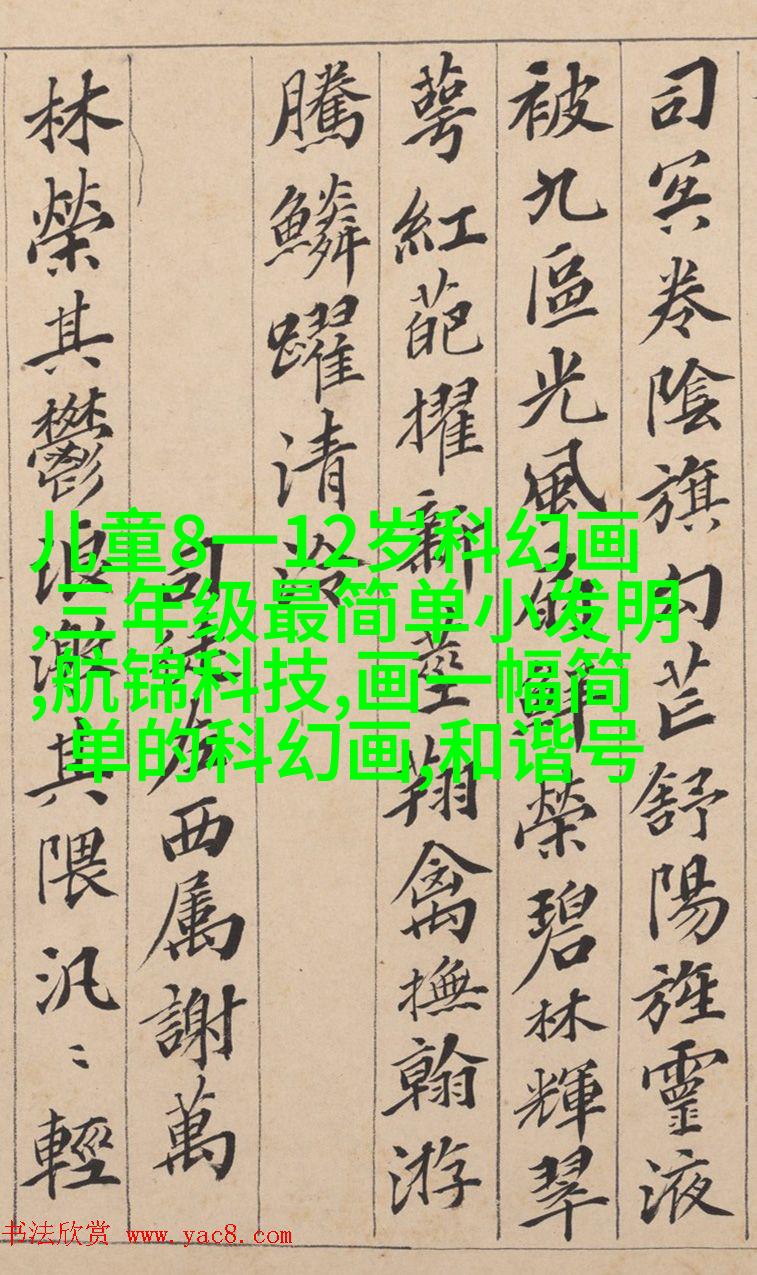 司冥卷陰旗勾芒舒陽旌靈液
被九區光風扇鮮榮碧林輝翠
萼紅葩擢新莖翔禽撫翰游
騰鱗躍清泠
司徒左西属謝萬
林榮其鬱浪激其隈汎〻輕
儿童8一12岁科幻画
,三年级最简单小发明
,航锦科技,画一幅简
单的科幻画,和谐号
书法欣赏 www.yac8.com